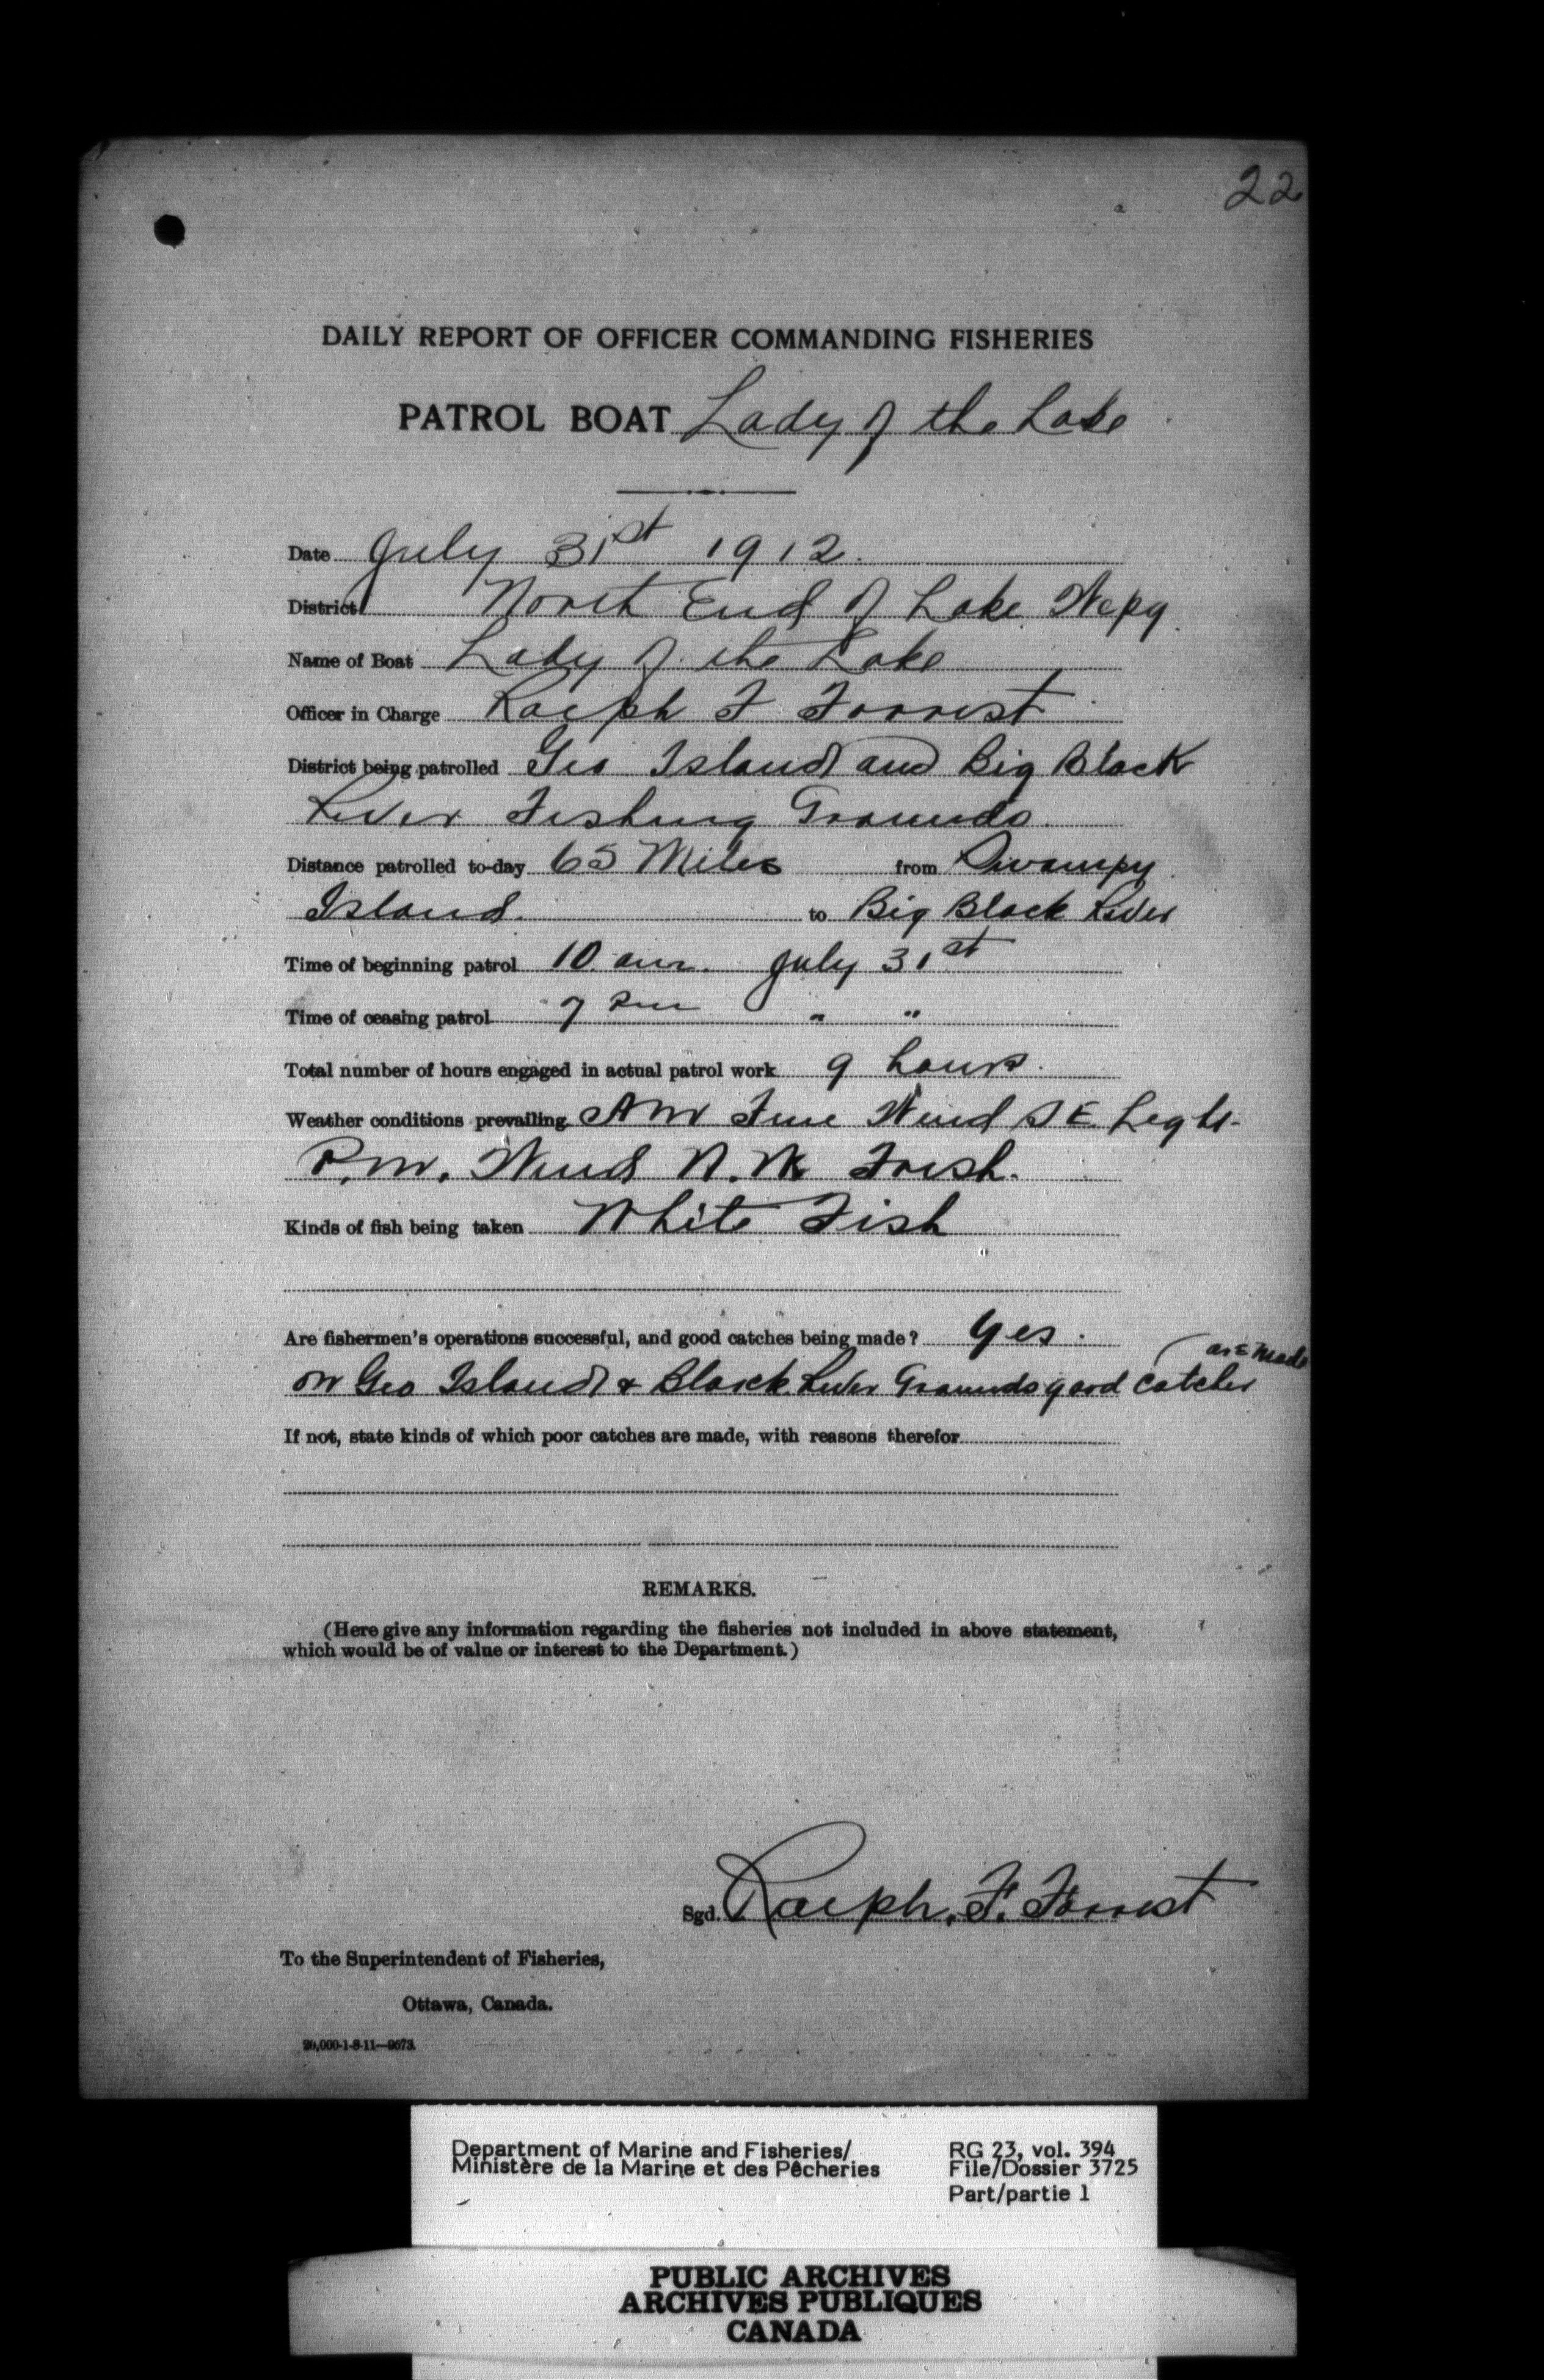 22
DAILY REPORT OF OFFICER COMMANDING FISHERIES
PATROL BOAT Lady of the Lake
Date July 31st 1912.
District North End of Lake Wepg.
Name of Boat Lady of the Lake
Officer in Charge Ralph F Forrest
District being patrolled Geo Island and Big Black
River Fishing Grounds.
Distance patrolled to-day 65 Miles from Swampy
Island. to Big Black River
Time of beginning patrol 10. am. July 31st
Time of ceasing patrol 7 Pm " "
Total number of hours engaged in actual patrol work 9 hours.
Weather conditions prevailing AM Fine Wind S E. Light-
P.M. Wind N.W Fresh.
Kinds of fish being taken White Fish
Are fishermen's operations successful, and good catches being made? Yes.
are made
on Geo Island & Black River Grounds good catches
If not, state kinds of which poor catches are made, with reasons therefor
REMARKS.
(Here give any information regarding the fisheries not included in above statement,
which would be of value or interest to the Department.)
Sgd. Ralph. F. Forrest
To the Superintendent of Fisheries,
Ottawa, Canada.
20,000-1-8-11—9673.
Department of Marine and Fisheries/ RG 23, vol. 394
Ministère de la Marine et des Pêcheries File/Dossier 3725
Part/partie 1
PUBLIC ARCHIVES
ARCHIVES PUBLIQUES
CANADA